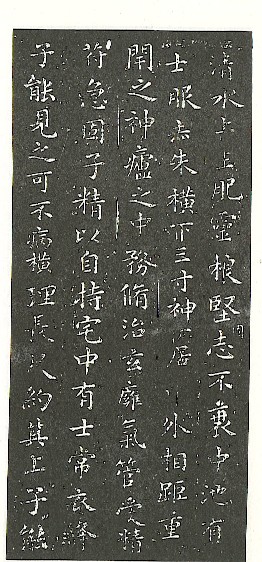 清水上下肥靈根堅志不衰中池有
士服赤朱橫下三寸神所居中外相距重
閉之神廬之中務脩治玄膺氣管受精
符急固子精以自持宅中有士常衣絳
子能見之可不病橫理長尺約其上子能